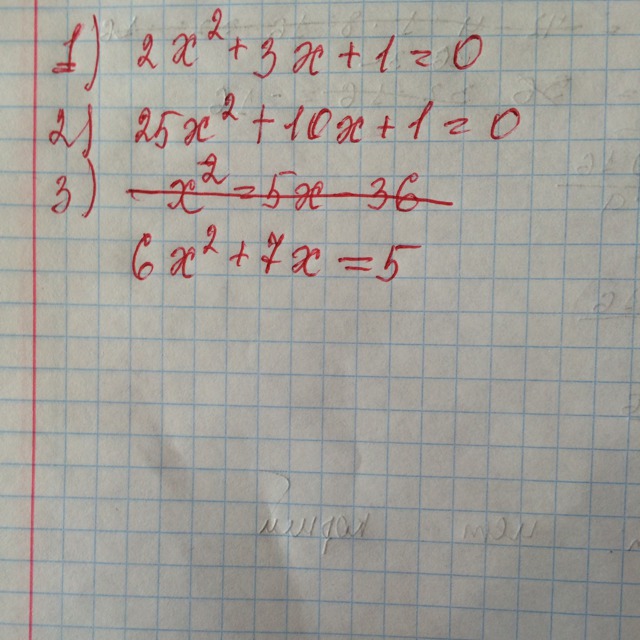 1) 2x² + 3x + 1 = 0
2) 25x² + 10x + 1 = 0
3) x² = 5x - 36
6x² + 7x = 5